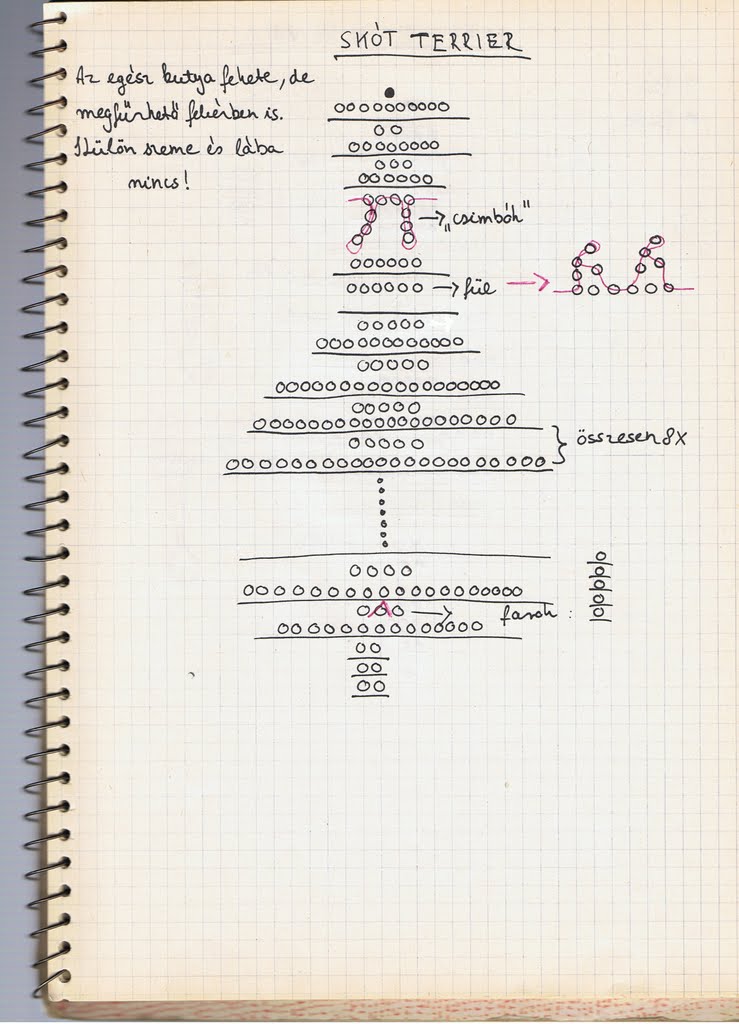 SKÓT TERRIER
Az egész kutya fekete, de
megfűzhető fehérben is.
Külön szeme és lába
nincs!
"csimbók"
fül
összesen 8X
farok :